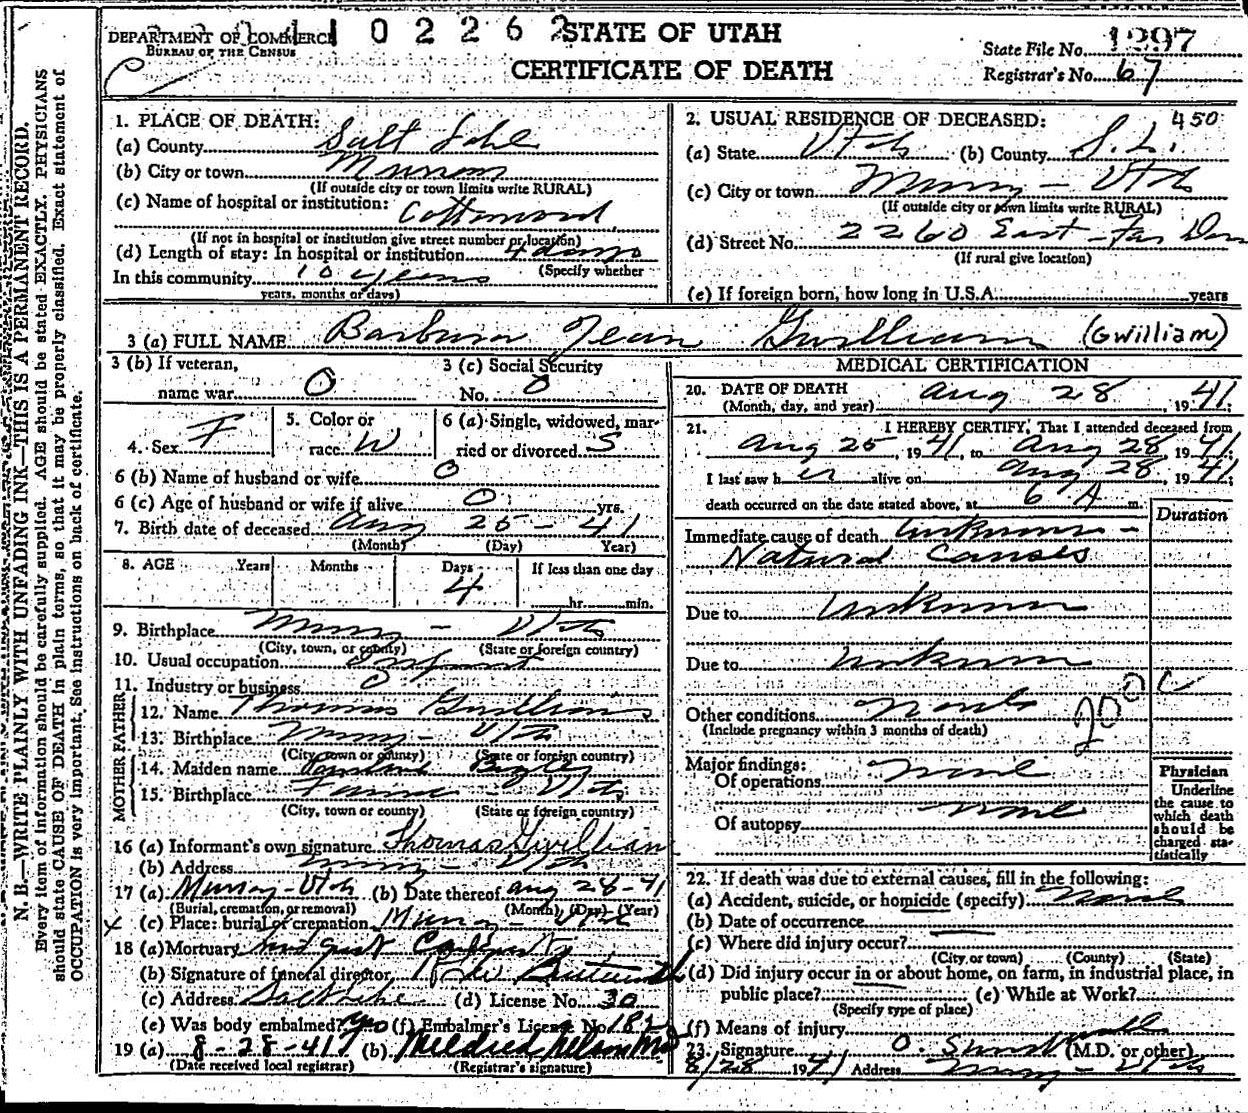 DEPARTMENT OF COMMERCE
BUREAU OF THE CENSUS
1 0 2 2 6 2
STATE OF UTAH
CERTIFICATE OF DEATH
State File No. 1397
Registrar's No. 67
N. B.—WRITE PLAINLY WITH UNFADING INK—THIS IS A PERMANENT RECORD.
Every item of information should be carefully supplied. AGE should be stated EXACTLY. PHYSICIANS
should state CAUSE OF DEATH in plain terms, so that it may be properly classified. Exact statement of
OCCUPATION is very important. See instructions on back of certificate.
1. PLACE OF DEATH:
(a) County Salt Lake
(b) City or town Murray
(If outside city or town limits write RURAL)
(c) Name of hospital or institution: Cottonwood
(If not in hospital or institution give street number or location)
(d) Length of stay: In hospital or institution 4 days
(Specify whether
In this community 10 years
years, months or days)
2. USUAL RESIDENCE OF DECEASED: 450
(a) State Utah (b) County S.L.
(c) City or town Murray - Utah
(If outside city or town limits write RURAL)
(d) Street No. 2260 East
(If rural give location)
(e) If foreign born, how long in U.S.A. years
3 (a) FULL NAME Barbara Jean Gwilliam (GWilliam)
3 (b) If veteran,
name war 0
3 (c) Social Security
No. 0
4. Sex F
5. Color or
race W
6 (a) Single, widowed, mar-
ried or divorced S
6 (b) Name of husband or wife 0
6 (c) Age of husband or wife if alive 0 yrs.
7. Birth date of deceased Aug 25 - 41
(Month) (Day) Year)
8. AGE Years Months Days If less than one day
4 hr. min.
9. Birthplace Murray - Utah
(City, town, or county) (State or foreign country)
10. Usual occupation Infant
11. Industry or business 0
FATHER
12. Name Thomas Gwilliam
13. Birthplace Murray - Utah
(City town or county) (State or foreign country)
MOTHER
14. Maiden name
15. Birthplace Utah
(City, town or county) (State or foreign country)
16 (a) Informant's own signature Thomas Gwilliam
(b) Address Murray - Utah
17 (a) Murray - Utah (b) Date thereof Aug 28-41
(Burial, cremation, or removal) (Month) (Day) (Year)
(c) Place: burial or cremation Murray - Utah
18 (a) Mortuary
(b) Signature of funeral director
(c) Address Salt Lake (d) License No. 30
(e) Was body embalmed? Yes (f) Embalmer's License No. 182
19 (a) 8-28-41 (b) Mildred Nelson MD
(Date received local registrar) (Registrar's signature)
MEDICAL CERTIFICATION
20. DATE OF DEATH Aug 28, 1941;
(Month, day, and year)
21. I HEREBY CERTIFY, That I attended deceased from
Aug 25, 1941, to Aug 28, 1941;
I last saw her alive on Aug 28, 1941;
death occurred on the date stated above, at 6 A m.
Duration
Immediate cause of death Unknown -
Natural Causes
Due to Unknown
Due to Unknown
Other conditions None
(Include pregnancy within 3 months of death)
200 c
Major findings:
Of operations None
Of autopsy None
Physician
Underline
the cause to
which death
should be
charged sta-
tistically
22. If death was due to external causes, fill in the following:
(a) Accident, suicide, or homicide (specify) None
(b) Date of occurrence
(c) Where did injury occur?
(City or town) (County) (State)
(d) Did injury occur in or about home, on farm, in industrial place, in
public place? (e) While at Work?
(Specify type of place)
(f) Means of injury
23. Signature (M.D. or other)
8/28 1941 Address Murray - Utah